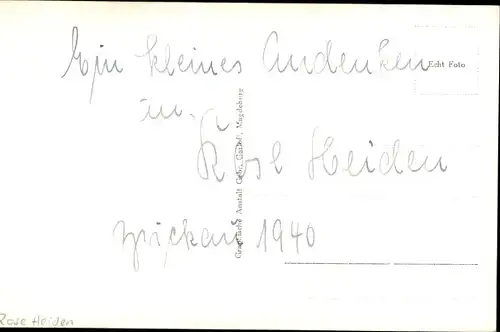 Ein kleines Andenken
Echt Foto
Rosl Heiden
Zwickau 1940
Graphische Anstalt Gebr. Garloff, Magdeburg
Rose Heiden